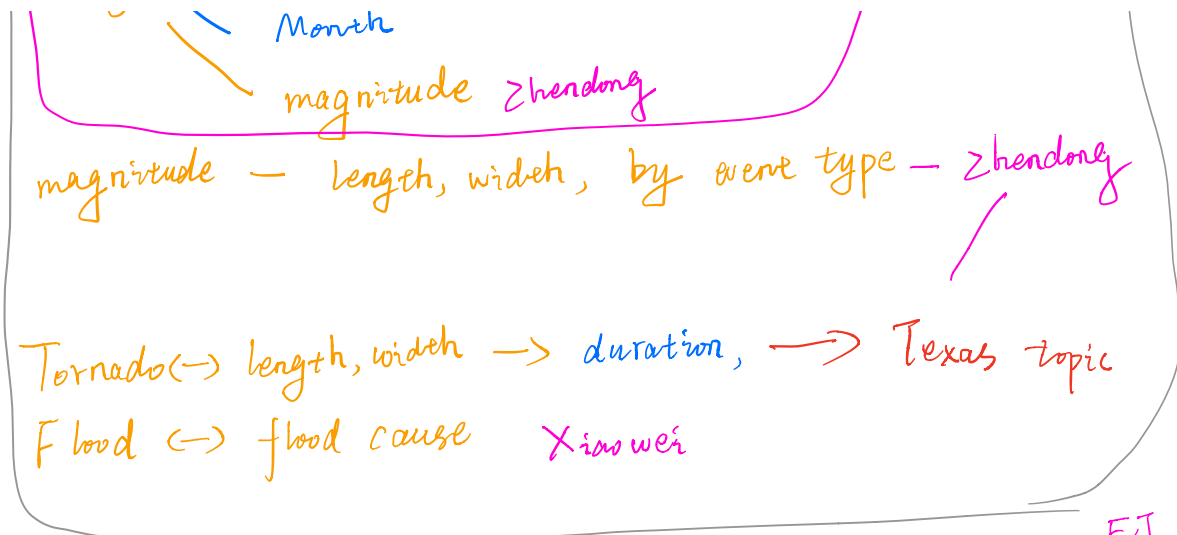 Month
magnitude Zhendong
magnitude — length, width, by event type — Zhendong
Tornado <-> length, width -> duration, -> Texas topic
Flood <-> flood cause Xiaowei